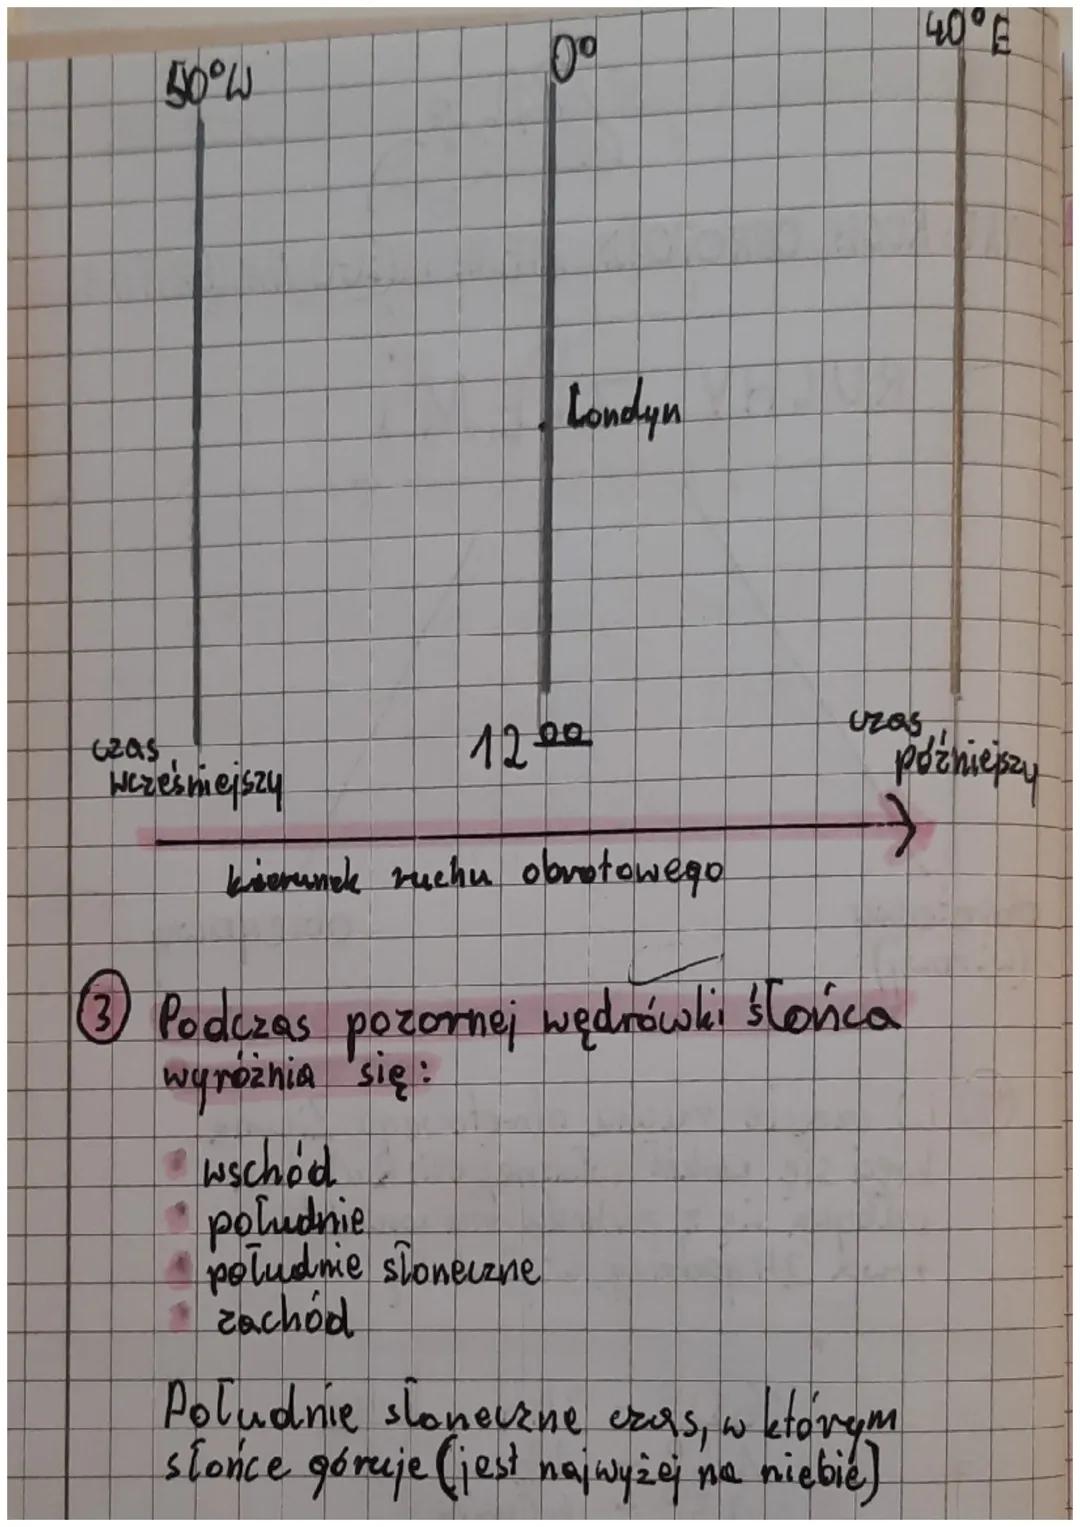 50°W 0° 40°E
Londyn
czas
wcześniejszy
12 00
czas
późniejszy
kierunek ruchu obrotowego
3 Podczas pozornej wędrówki słońca
wyróżnia się:
• wschód
• południe
• południe słoneczne
• zachód
Południe słoneczne czas, w którym
słońce góruje (jest najwyżej na niebie)